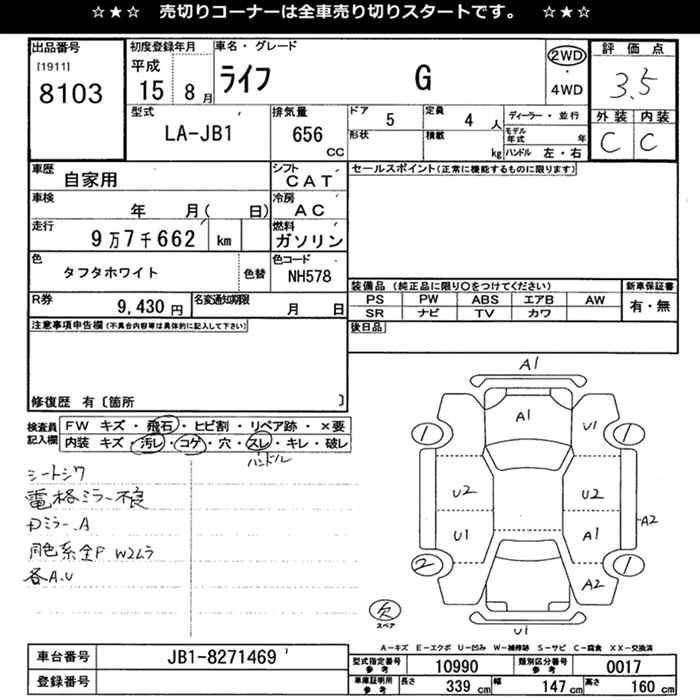 ☆★☆ 売切りコーナーは全車売り切りスタートです。 ☆★☆
出品番号
[1911]
8103
初度登録年月
平成
15 8月
車名・グレード
ライフ G
2WD
・
4WD
評価点
3.5
外装 内装
C C
型式
LA-JB1
排気量
656
CC
ドア 5
形状
定員 4 人
積載 kg
ディーラー・並行
モデル年式 年
ハンドル 左・右
車歴
自家用
シフト
CAT
車検
年 月( 日)
冷房
AC
走行
9万7千662 km
燃料
ガソリン
色
タフタホワイト
色替
色コード
NH578
R券
9,430 円
名変通知期限
月 日
セールスポイント(正常に機能するものに限ります)
装備品 (純正品に限り○をつけてください)
PS PW ABS エアB AW
SR ナビ TV カワ
新車保証書
有・無
後日品
注意事項申告欄(不具合内容等は具体的に記入して下さい)
修復歴 有〔箇所 〕
検査員
記入欄
FW キズ・飛石・ヒビ割・リペア跡・×要
内装 キズ・汚レ・コゲ・穴・スレ・キレ・破レ
ハンドル
シートシワ
電格ミラー不良
Dミラー.A
同色系全P W2ムラ
各A.U
A1
A1
U1
1
1
U2
U2
U1
A1
A2
2
1
A2
欠
スペア
U1
A-キズ E-エクボ U-凹み W-補修跡 S-サビ C-腐食 XX-交換済
車台番号
JB1-8271469
登録番号
型式指定番号
参考
10990
類別区分番号
参考
0017
車庫証明用
参考
長さ 339 cm
幅 147 cm
高さ 160 cm